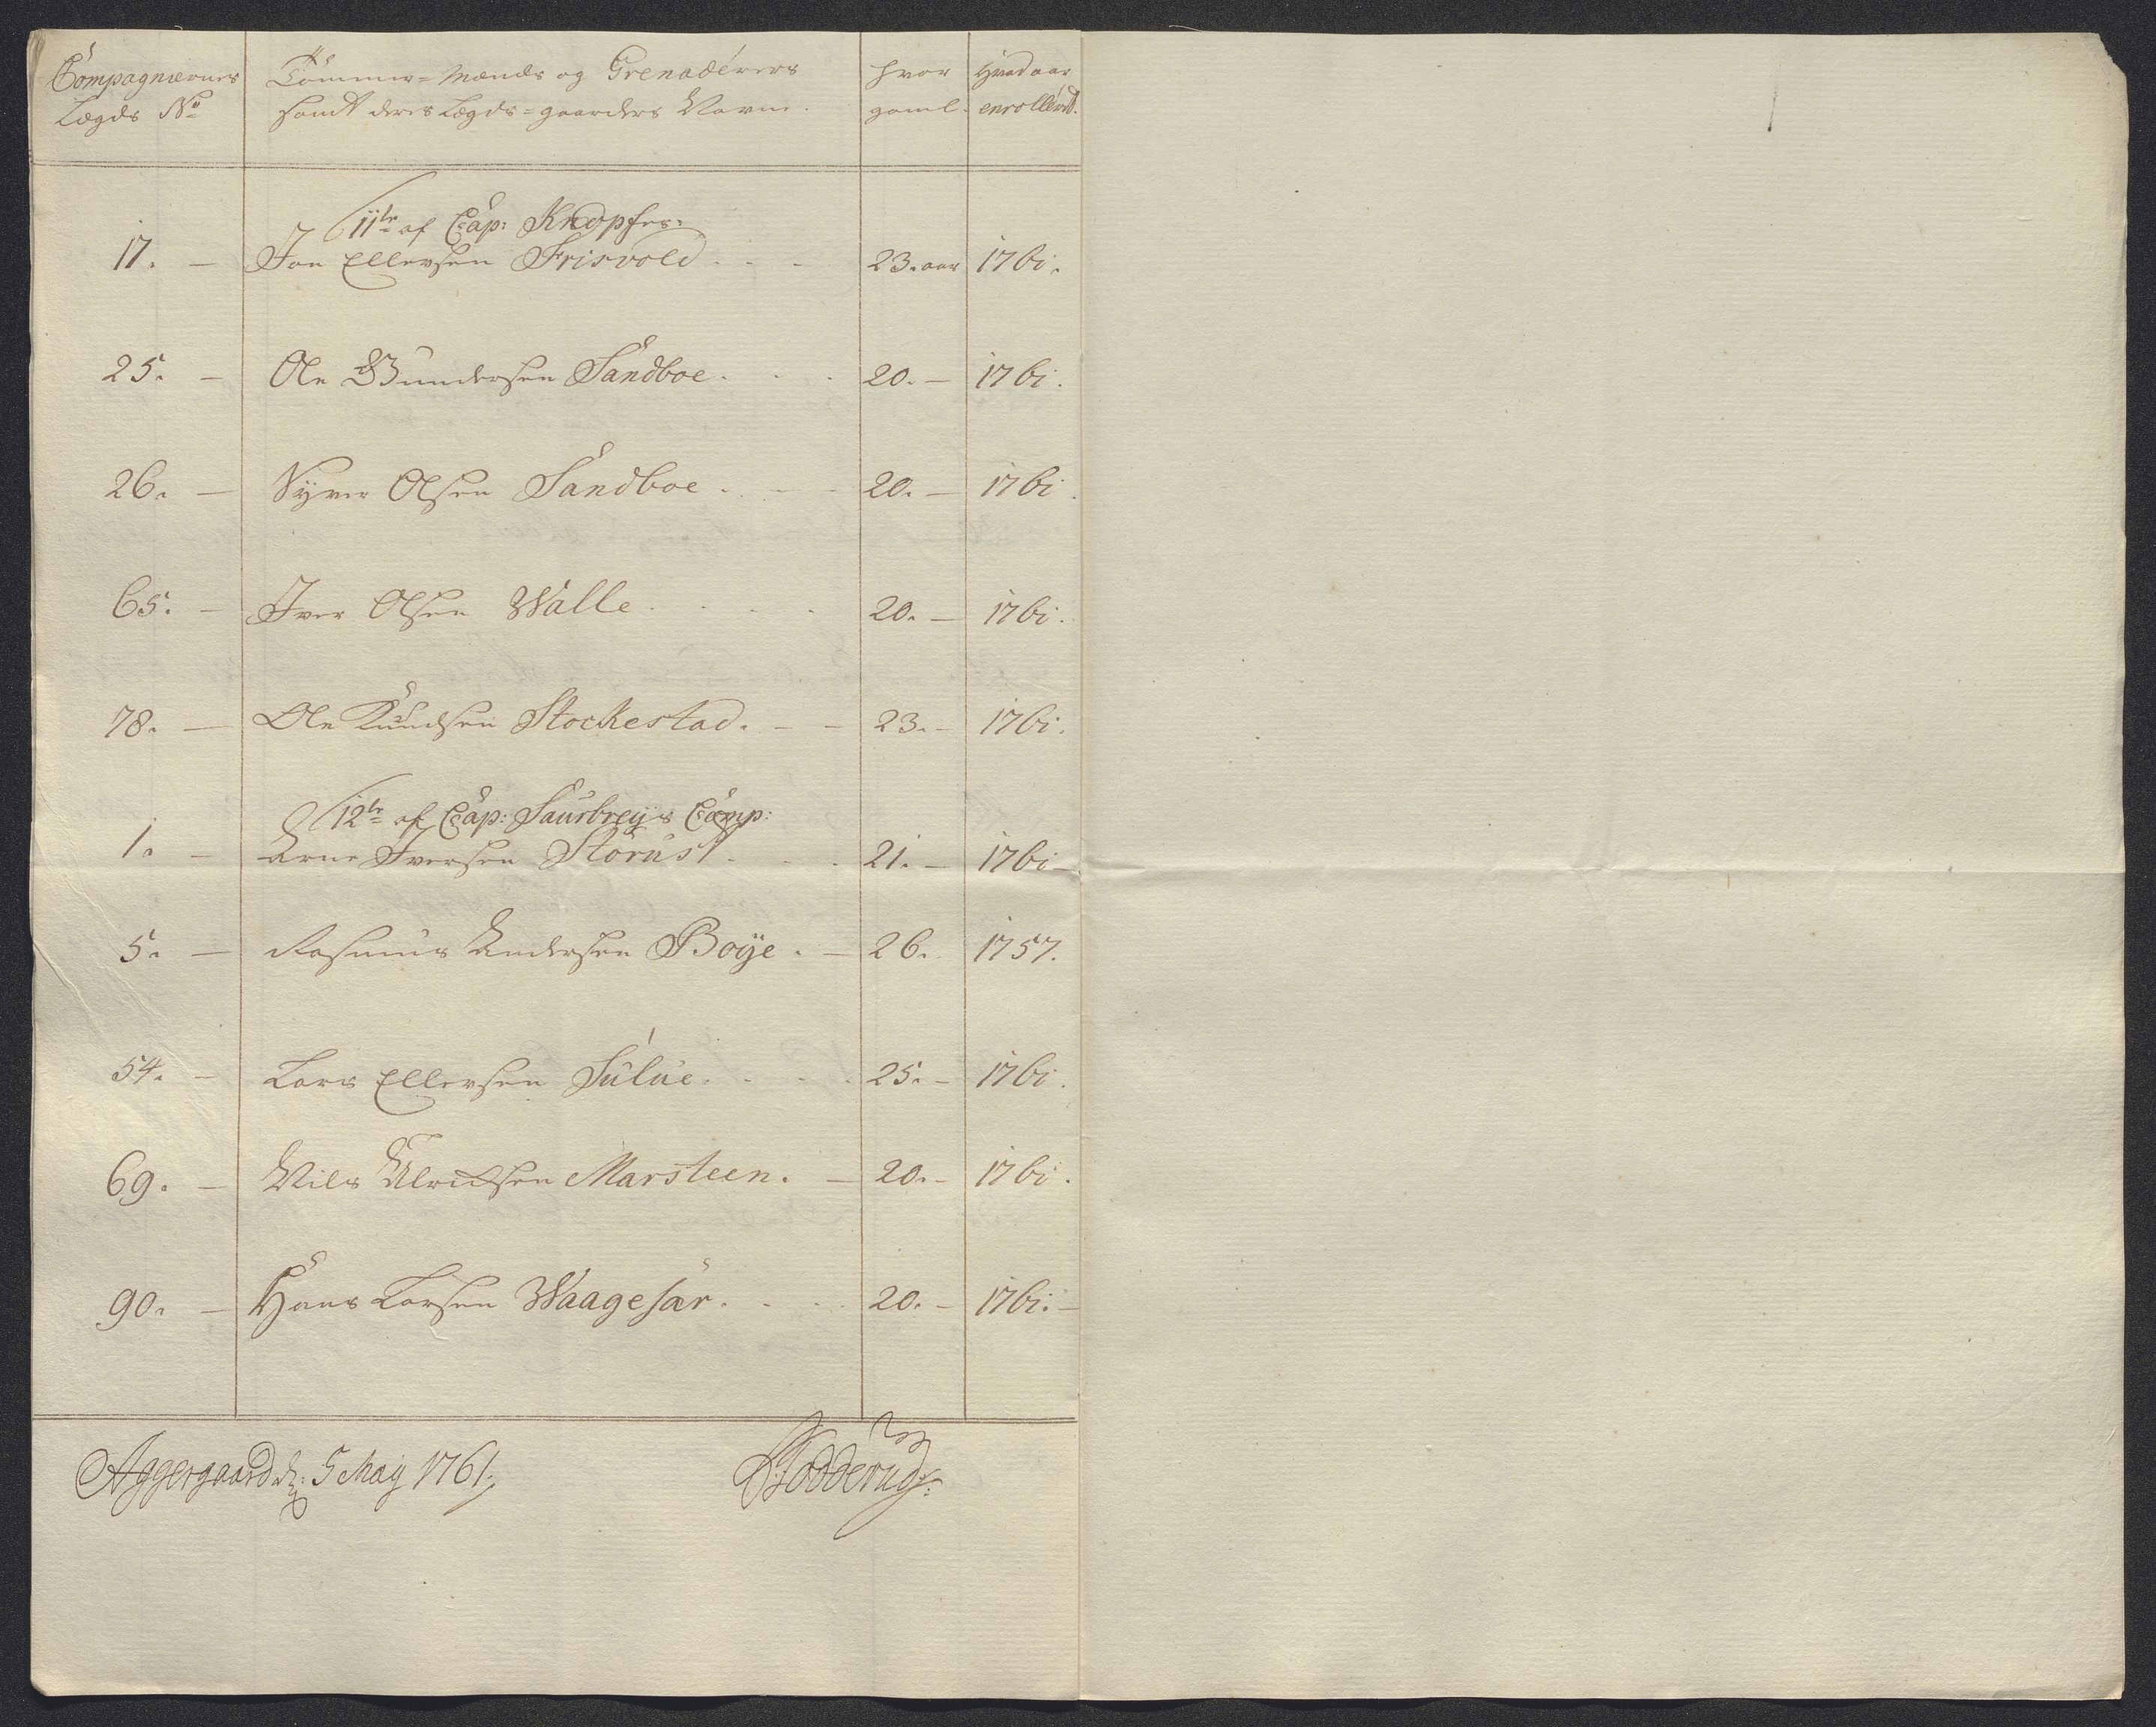 Compagniernes Tømmer-Mænds og Grenadérers hvor Hvad aar
Lægds No samt deres Lægds-gaarders Navne. gaml. enrolleret.
11te af Cap: Knopfes:
17. — Jon Ellevsen Frisvold 23. aar 1761.
25. — Ole Gundersen Sandboe 20. — 1761.
26. — Syver Olsen Sandboe 20. — 1761.
65. — Iver Olsen Walle 20. — 1761.
78. — Ole Knudsen Stockestad 23. — 1761.
12te af Cap: Saurbreys Comp:
1. — Arne Iversen Storust 21. — 1761
5. — Rasmus Andersen Boye 26. 1757.
54. — Lars Ellevsen Sulue 25. — 1761.
69. — Nils Ulrichsen Marsteen 20. — 1761.
90. — Hans Larsen Waagesar 20. — 1761. —
Aggergaard d: 5 May 1761.